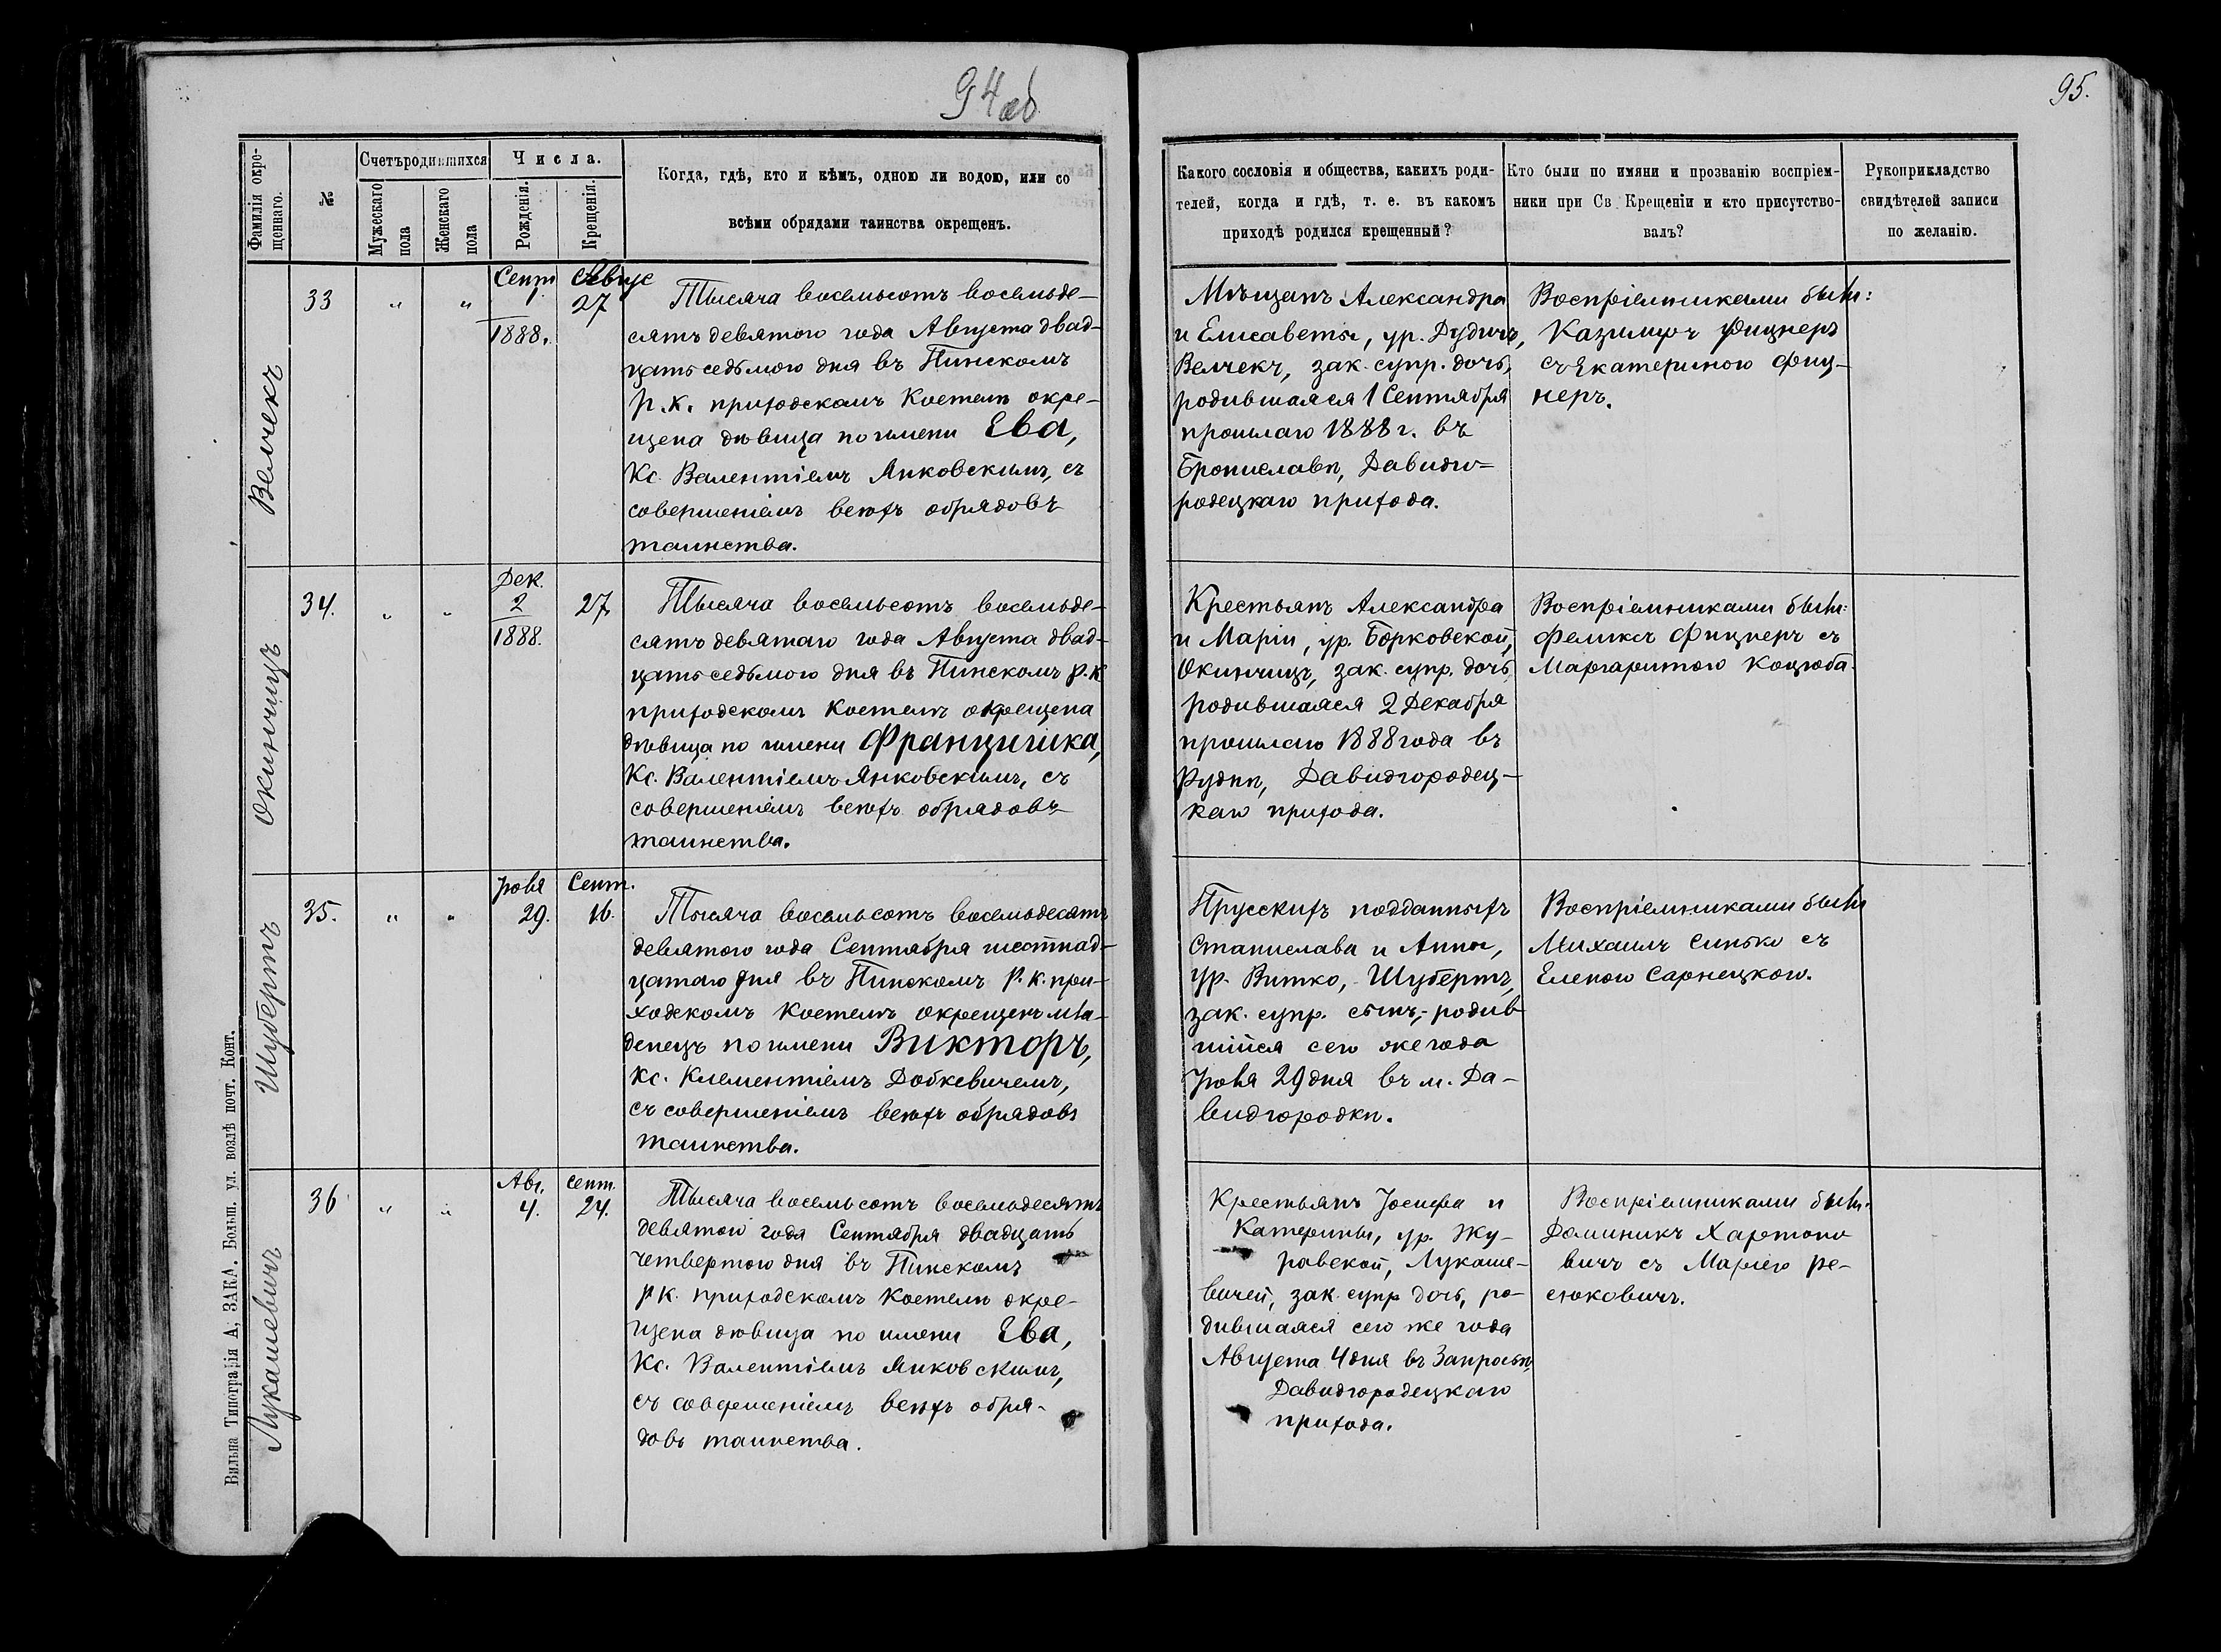 94 об
95.
Фамилія окре-
щеннаго.
№
Счетъ родившихся
Мужескаго
пола
Женскаго
пола
Числа.
Рожденія.
Крещенія.
Когда, гдѣ, кто и кѣмъ, одною ли водою, или со
всѣми обрядами таинства окрещенъ.
Какого сословія и общества, какихъ роди-
телей, когда и гдѣ, т. е. въ какомъ
приходѣ родился крещенный?
Кто были по имяни и прозванію воспріем-
ники при Св. Крещеніи и кто присутство-
валъ?
Рукоприкладство
свидѣтелей записи
по желанію.
Велчекъ
33
"
"
Сент
1.
1888.
Авгус
27
Тысяча восемьсотъ восемьде-
сятъ девятого года Августа двад-
цать седьмого дня въ Пинскомъ
р. к. приходскомъ Костелѣ окре-
щена дѣвица по имени Ева,
Кс. Валентіемъ Янковскимъ, съ
совершеніемъ всѣхъ обрядовъ
таинства.
Мѣщанъ Александра
и Елисаветы, ур. Дудичъ,
Велчекъ, зак. супр. дочь,
родившаяся 1 Сентября
прошлаго 1888 г. въ
Брониславѣ, Давидго-
родецкаго прихода.
Воспріемниками были:
Казимиръ Фицнеръ
съ Екатериною Фиц-
неръ.
Окинчицъ
34.
"
"
Дек.
2
1888.
27
Тысяча восемьсотъ восемьде-
сятъ девятаго года Августа двад-
цать седьмого дня въ Пинскомъ р. к
приходскомъ Костелѣ окрещена
дѣвица по имени Францишка,
Кс. Валентіемъ Янковскимъ, съ
совершеніемъ всѣхъ обрядовъ
таинства.
Крестьянъ Александра
и Маріи, ур. Борковской,
Окинчицъ, зак. супр. дочь
родившаяся 2 Декабря
прошлаго 1888 года въ
Рудни, Давидгородец-
каго прихода.
Воспріемниками были:
Феликсъ Фицнеръ съ
Маргаритою Коцюба.
Шубертъ
35.
"
"
Іюля
29.
Сент.
16.
Тысяча восемьсотъ восемьдесятъ
девятого года Сентября шестнад-
цатаго дня въ Пинскомъ р. к. при-
ходскомъ Костелѣ окрещенъ мла-
денецъ по имени Викторъ,
Кс. Клементіемъ Добкевичемъ,
съ совершеніемъ всѣхъ обрядовъ
таинства.
Прусскихъ подданныхъ
Станислава и Анны,
ур. Витко, Шубертъ,
зак. супр. сынъ, родив
шійся сего же года
Іюля 29 дня въ м. Да-
видгородкѣ.
Воспріемниками были
Михаилъ Синько съ
Еленою Сарнецкою.
Лукашевичъ
36
"
"
Авг.
4.
Сент.
24.
Тысяча восемьсотъ восемьдесятъ
девятого года Сентября двадцать
четвертого дня въ Пинскомъ
р. к. приходскомъ Костелѣ окре-
щена дѣвица по имени Ева,
Кс. Валентіемъ Янковскимъ,
съ совершеніемъ всѣхъ обря-
довъ таинства.
Крестьянъ Іосифа и
Катерины, ур. Жу-
равской, Лукаше-
вичей, зак. супр дочь, ро-
дившаяся сего же года
Августа 4 дня въ Запросьѣ,
Давидгородецкаго
прихода.
Воспріемниками были:
Доминикъ Харитоно
вичъ съ Маріею Ре-
сюковичъ.
Вильна Типографія А; ЗАКА. Больш. ул. возлѣ почт. Конт.